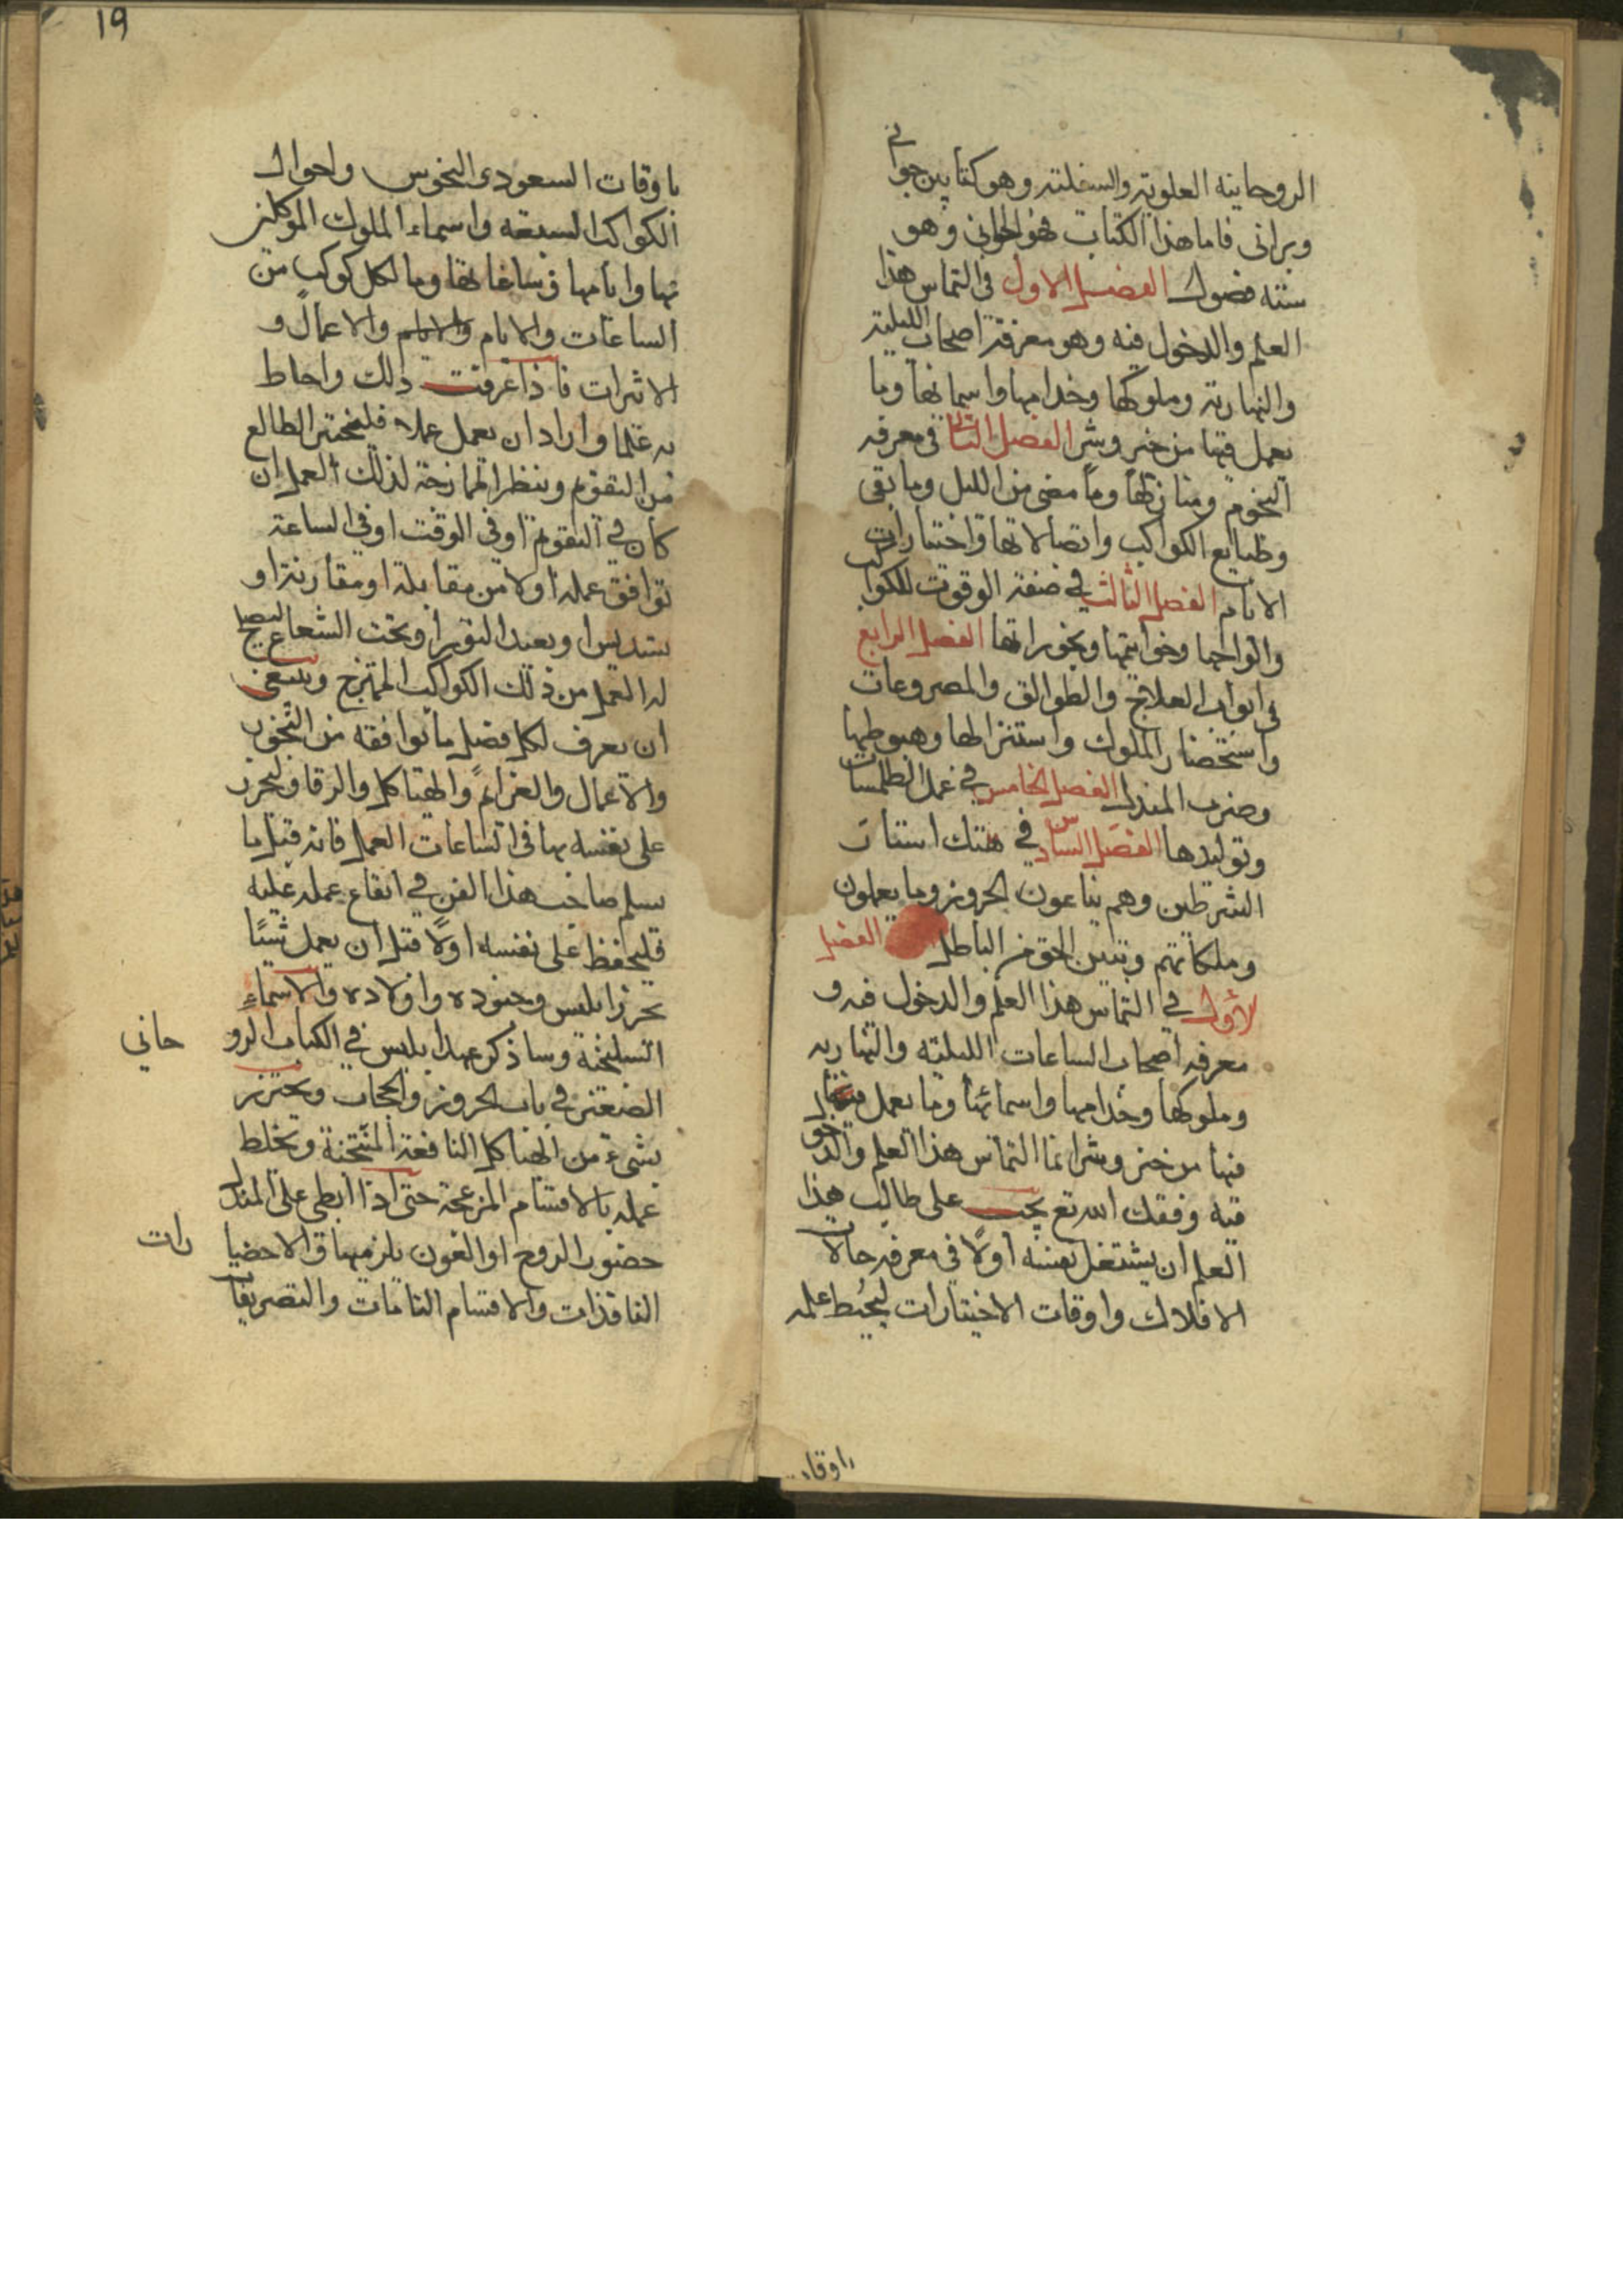 الروحانية العلوية والسفلية وهو كتابين جواني
وبراني فاما هذا الكتاب فهو الجواني وهو
ستة فصول الفصل الاول في التماس هذا
العلم والدخول فيه وهو معرفة اصحاب الليلية
والنهارية وملوكها وخدامها واسمائها وما
يعمل فيها من خير وشر الفصل الثاني في معرفة
النجوم ومنازلها وما مضى من الليل وما بقى
وطبايع الكواكب واتصالاتها واختيارات
الايام الفصل الثالث في صفة الوقوت للكواكب
والواحها وخواتيمها وبخوراتها الفصل الرابع
في ابواب العلايج والطوالق والمصروعات
واستحضار الملوك واستنزالها وهبوطها
وضرب المندل الفصل الخامس في عمل الطلمسات
وتوليدها الفصل السادس في هتك استار
الشرطين وهم بياعون الحروز وما يعملون
وملكاتهم وتبين الحق من الباطل الفصل
الاول في التماس هذا العلم والدخول فيه و
معرفة اصحاب الساعات الليلية والنهارية
وملوكها وخدامها واسمائها وما يعمل
فيها من خير وشر انما التماس هذا العلم والدخول
فيه وفقك الله تع يجب على طالب هذا
العلم ان يشتغل نفسه أولاً في معرفة حالات
الافلاك واوقات الاختيارات ليحيط علمه
باوقات
باوقات السعودي النحوس واحوال
الكواكب السبعة واسماء الملوك الموكلين
بها وايامها وساعاتها وما لكل كوكب من
الساعات والايام والايام والاعمال و
الاثرات فاذا عرفت ذلك واحاط
به علما واراد ان يعمل عملا فليختر الطالع
من التقويم وينظر الممازجة لذلك العمل ان
كان في التقويم او في الوقت او في الساعة
توافق عمله أولا من مقابلة او مقارنة او
تسديس او بعيد النوير او تحت الشعاع ليصلح
له العمل من ذلك الكواكب الممتزج وينبغي
ان يعرف لكل فصل ما يوافقه من البخور
والاعمال والعزائم والهياكل والرقا وليحرز
على نفسه بها في الساعات العمل فانه قبل ما
يسلم صاحب هذا الفن في ايقاع عمله عليه
فليحفظ على نفسه اولاً قبل ان يعمل شيئًا
بحرز ابليس وجنوده واولاده والاسماء
السليخثة وساذكر عهد ابليس في الكتاب الروحاني
الصنعتين في باب الحروز والحجاب ويحترز
بشيء من الهياكل النافعة الممتحنة ويخلط
عمله بالاقسام المزعجة حتى اذا ابطى على المندل
حضور الروح او العون يلزمها والاحضيارات
النافذات والاقسام التامات والتصريفات
19